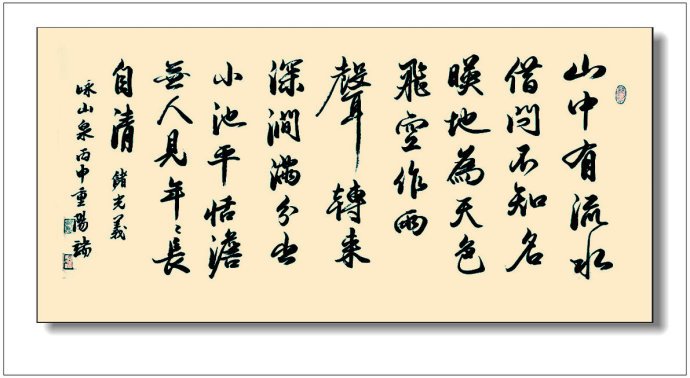 山中有流水
借問不知名
暎地為天色
飛空作雨
聲轉来
深澗滿分出
小池平恬澹
無人見年々長
自清 儲光義
咏山泉丙申重陽